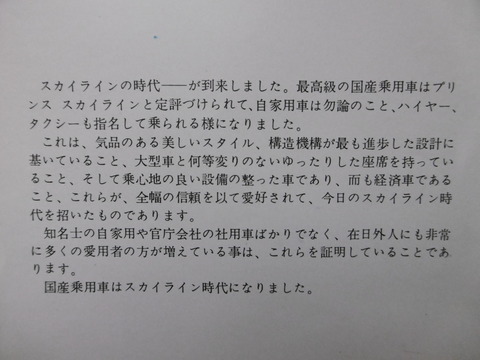 スカイラインの時代――が到来しました。最高級の国産乗用車はプリ
ンス スカイラインと定評づけられて、自家用車は勿論のこと、ハイヤー、
タクシーも指名して乗られる様になりました。
これは、気品のある美しいスタイル、構造機構が最も進歩した設計に
基いていること、大型車と何等変りのないゆったりした座席を持ってい
ること、そして乗心地の良い設備の整った車であり、而も経済車である
こと、これらが、全幅の信頼を以て愛好されて、今日のスカイライン時
代を招いたものであります。
知名士の自家用や官庁会社の社用車ばかりでなく、在日外人にも非常
に多くの愛用者の方が増えている事は、これらを証明していることであ
ります。
国産乗用車はスカイライン時代になりました。